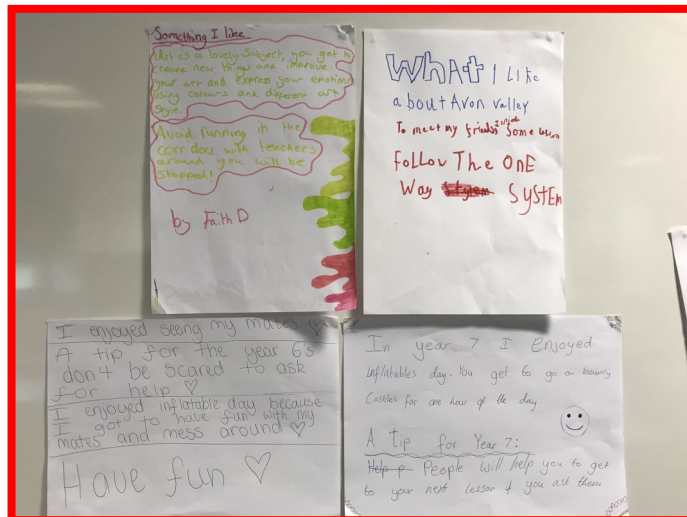 Something I like
Art is a lovely subject, you get to
create new things and improve
your art and express your emotions
using colours and different art
style.
Avoid running in the
corridors with teachers
around you will be
stopped!
by Faith D
What I like
about Avon valley
To meet my friends I enjoy some lesson
Follow The OnE
Way System
I enjoyed seeing my mates
A tip for the year 6's
don't be scared to ask
for help
I enjoyed inflatable day because
I got to have fun with my
mates and mess around
Have fun
In year 7 I Enjoyed
Inflatables day. You get to go on bouncy
Castles for one hour of the day
A tip for Year 7:
Help People will help you to get
to your next lesson if you ask them